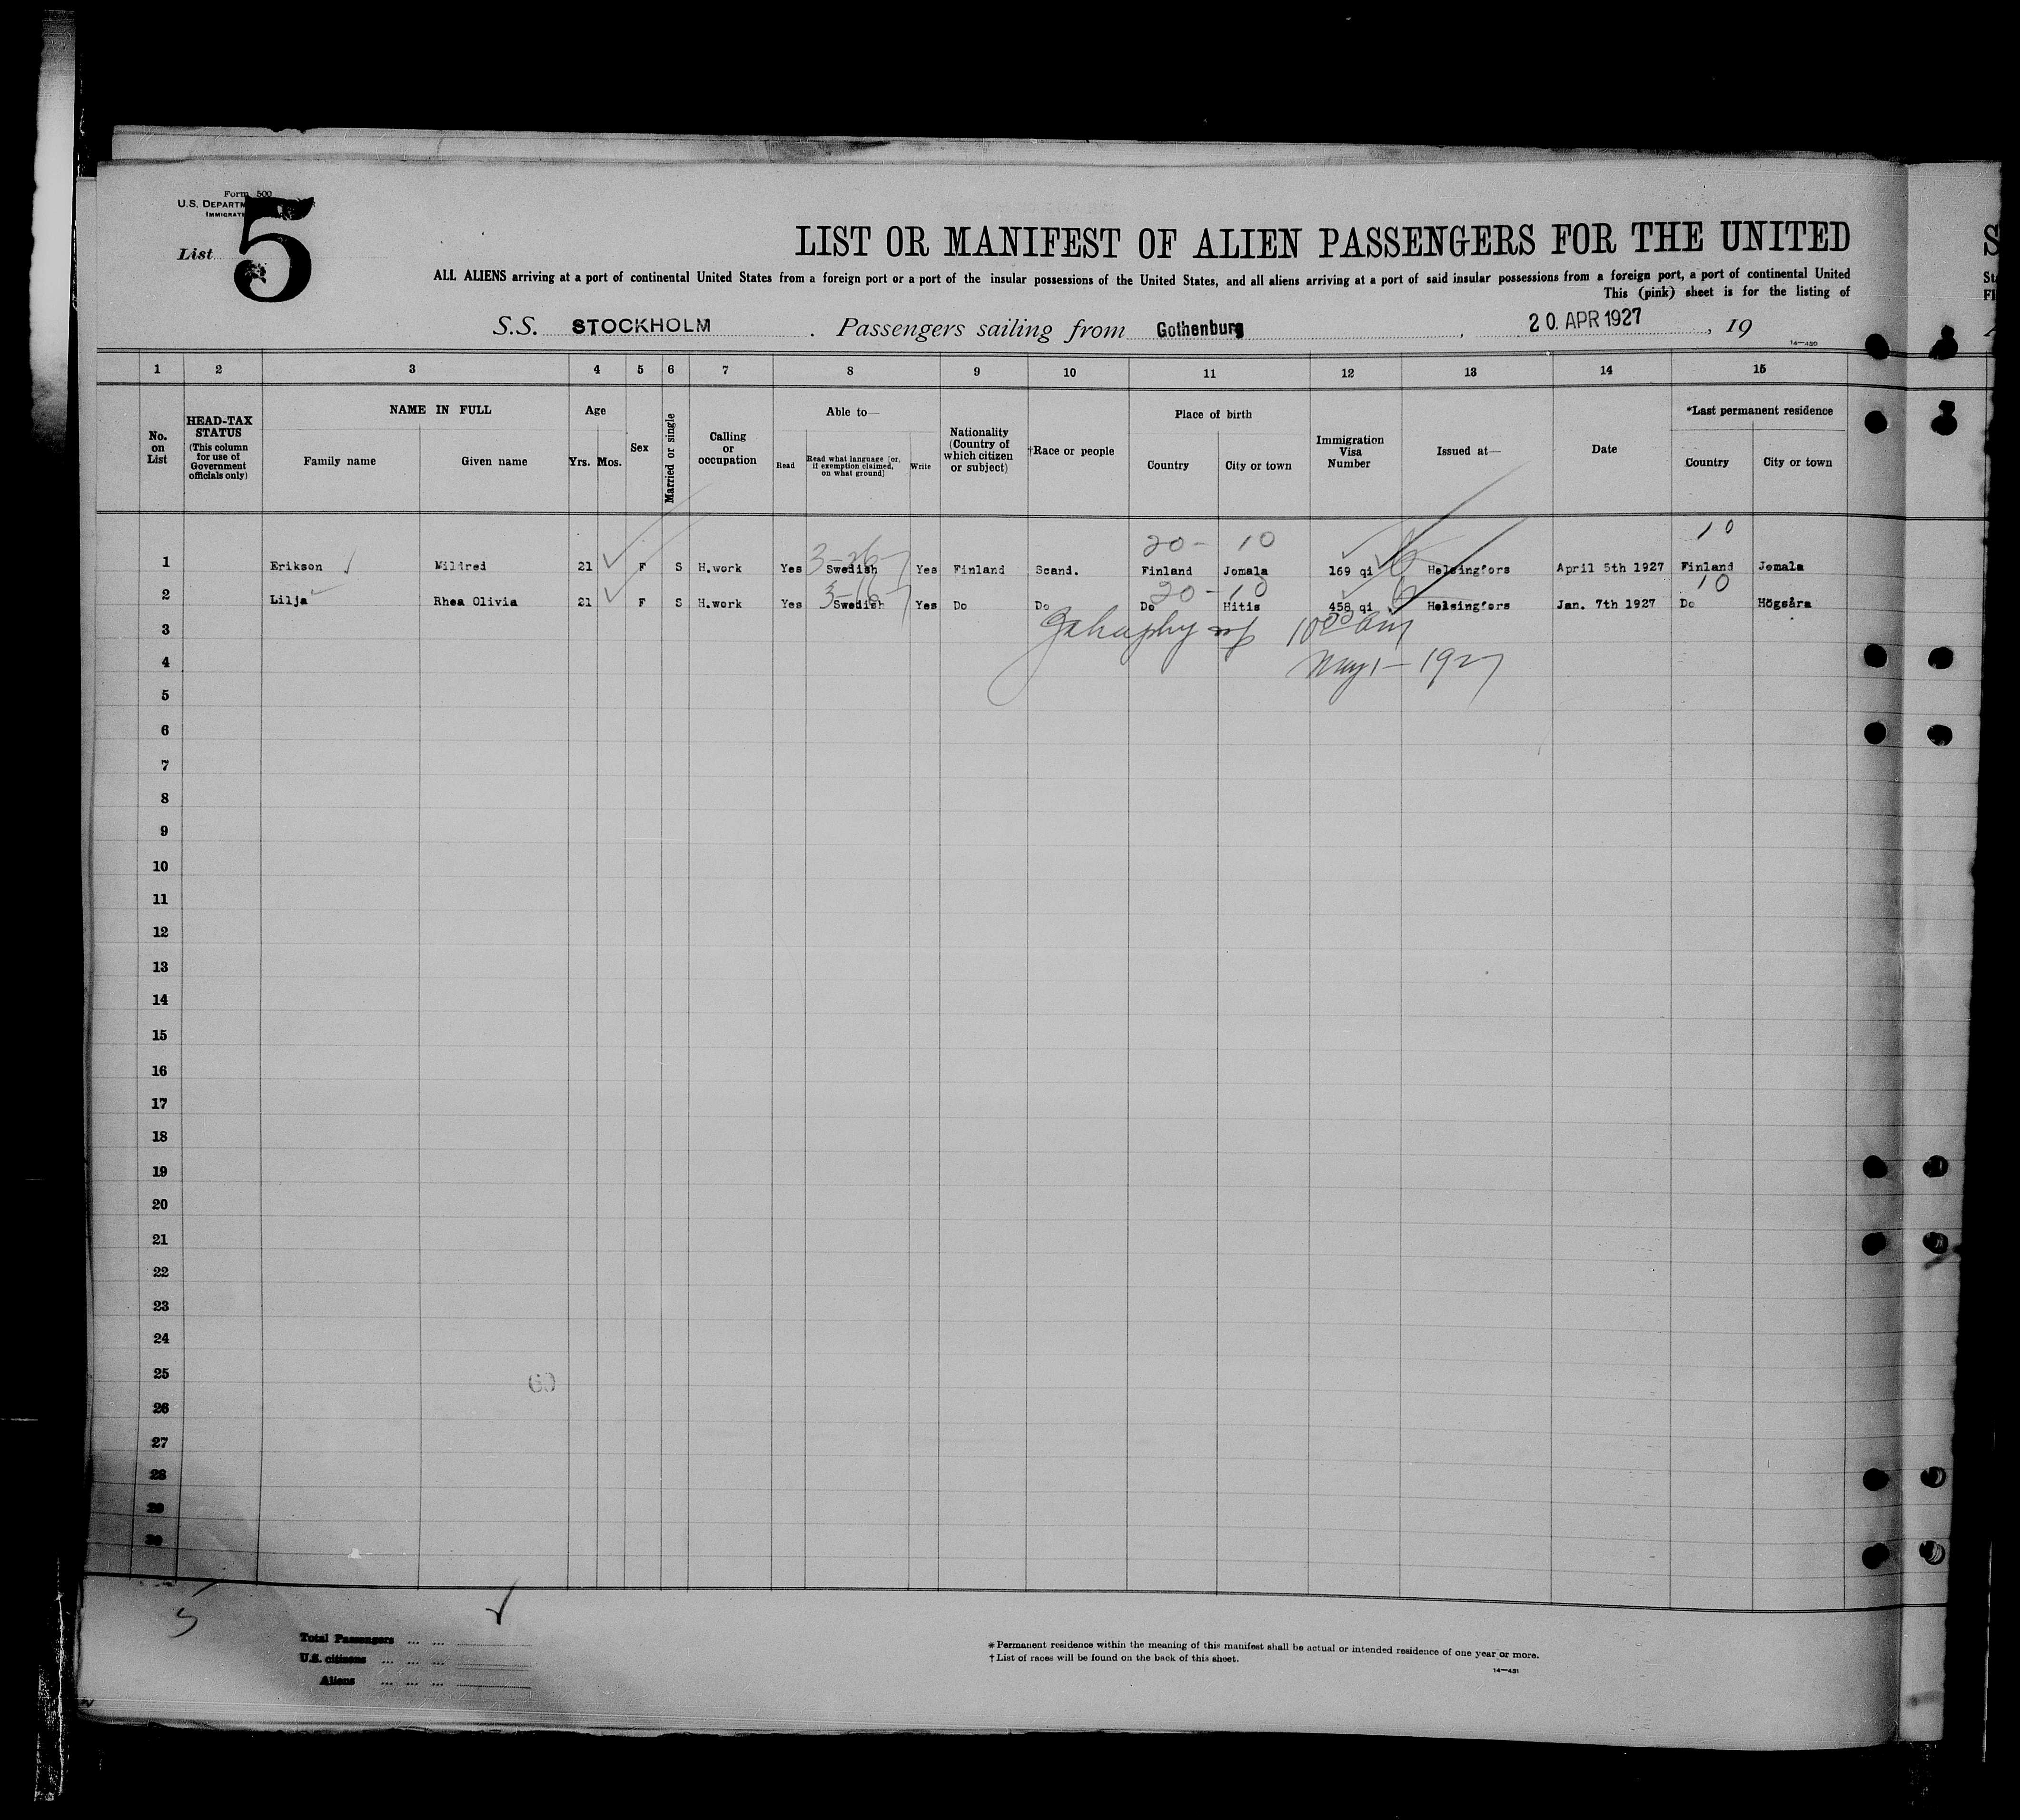 Form 500
U.S. DEPARTM
IMMIGRATI
List 5
LIST OR MANIFEST OF ALIEN PASSENGERS FOR THE UNITED
ALL ALIENS arriving at a port of continental United States from a foreign port or a port of the insular possessions of the United States, and all aliens arriving at a port of said insular possessions from a foreign port, a port of continental United
This (pink) sheet is for the listing of
S.S. STOCKHOLM . Passengers sailing from Gothenburg , 20. APR 1927 , 19
14—430
1 2 3 4 5 6 7 8 9 10 11 12 13 14 15
No. on List
HEAD-TAX STATUS (This column for use of Government officials only)
NAME IN FULL
Family name Given name
Age
Yrs. Mos.
Sex
Married or single
Calling or occupation
Able to—
Read
Read what language [or, if exemption claimed, on what ground]
Write
Nationality (Country of which citizen or subject)
†Race or people
Place of birth
Country City or town
Immigration Visa Number
Issued at—
Date
*Last permanent residence
Country City or town
20 - 10 10
1 Erikson Mildred 21 F S H.work Yes Swedish Yes Finland Scand. Finland Jomala 169 qi Helsingfors April 5th 1927 Finland Jomala
3-26-7
20 - 10 10
2 Lilja Rhea Olivia 21 F S H.work Yes Swedish Yes Do Do Do Hitis 458 qi Helsingfors Jan. 7th 1927 Do Högsåra
3
4 May 1 - 1927
5
6
7
8
9
10
11
12
13
14
15
16
17
18
19
20
21
22
23
24
25
26
27
28
29
30
5
Total Passengers ... ...
U.S. citizens ... ... ...
Aliens ... ... ...
*Permanent residence within the meaning of this manifest shall be actual or intended residence of one year or more.
†List of races will be found on the back of this sheet.
14—431